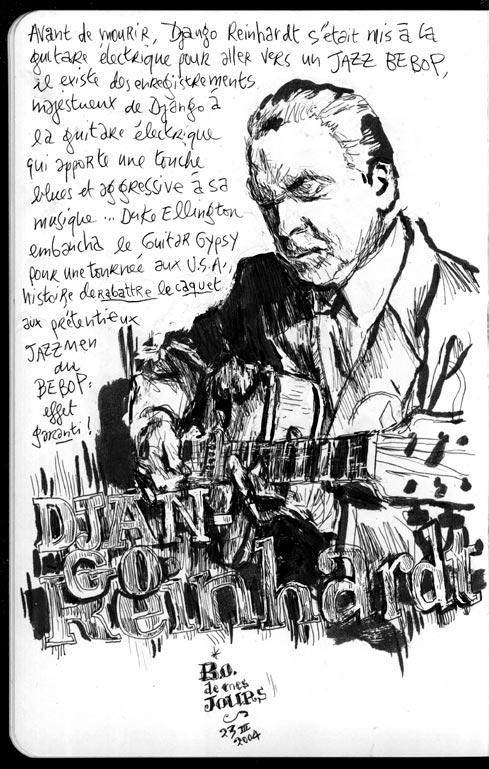 Avant de mourir, Django Reinhardt s'était mis à la
guitare électrique pour aller vers un JAZZ BEBOP,
il existe des enregistrements
majestueux de Django à
la guitare électrique
qui apporte une touche
blues et aggressive à sa
musique... Duke Ellington
embaucha le Guitar Gypsy
pour une tournée aux U.S.A.,
histoire de rabattre le caquet
aux prétentieux
JAZZMEN
du
BEBOP:
effet
garanti!
DJAN-
GO
Reinhardt
*
B.O.
de mes
JOURS
23 III
2004